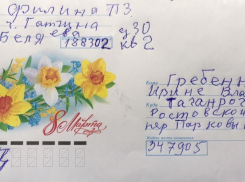 Филина ТЗ
г. Гатчина
Беляева д 30
кв 2
188302
Кому Гребенн
Ирине Вла
Куда Таганрог
Ростовской
пер Парковы
347905
8 Марта